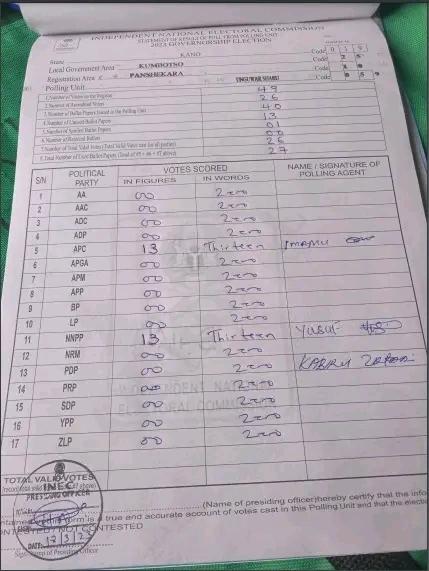 INDEPENDENT NATIONAL ELECTORAL COMMISSION
STATEMENT OF RESULT OF POLL FROM POLLING UNIT
2023 GOVERNORSHIP ELECTION
State KANO Code 0 1 9
Local Government Area KUMBOTSO Code 2
Registration Area PANSHEKARA Code 1 0
Polling Unit Code 0 5 9
1.Number of Voters on the Register 49
2.Number of Accredited Voters 26
3.Number of Ballot Papers Issued to the Polling Unit 40
4.Number of Unused Ballot Papers 13
5.Number of Spoiled Ballot Papers 01
6.Number of Rejected Ballots 00
7.Number of Total Valid Votes (Total Valid Votes cast for all parties) 26
8.Total Number of Used Ballot Papers (Total of #5 + #6 + #7 above) 27
S/N POLITICAL PARTY VOTES SCORED NAME / SIGNATURE OF POLLING AGENT
IN FIGURES IN WORDS
1 AA 00 Zero
2 AAC 00 Zero
3 ADC 00 Zero
4 ADP 00 Zero
5 APC 13 Thirteen
6 APGA 00 Zero
7 APM 00 Zero
8 APP 00 Zero
9 BP 00 Zero
10 LP 00 Zero
11 NNPP 13 Thirteen YUSUF
12 NRM 00 Zero
13 PDP 00 Zero
14 PRP 00 Zero
15 SDP 00 Zero
16 YPP 00 Zero
17 ZLP 00 Zero
TOTAL VALID VOTES
INEC
PRESIDING OFFICER
(Name of presiding officer)hereby certify that the info
form is a true and accurate account of votes cast in this Polling Unit and that the electi
CONTESTED / NOT CONTESTED
DATE
Signature of Presiding Officer